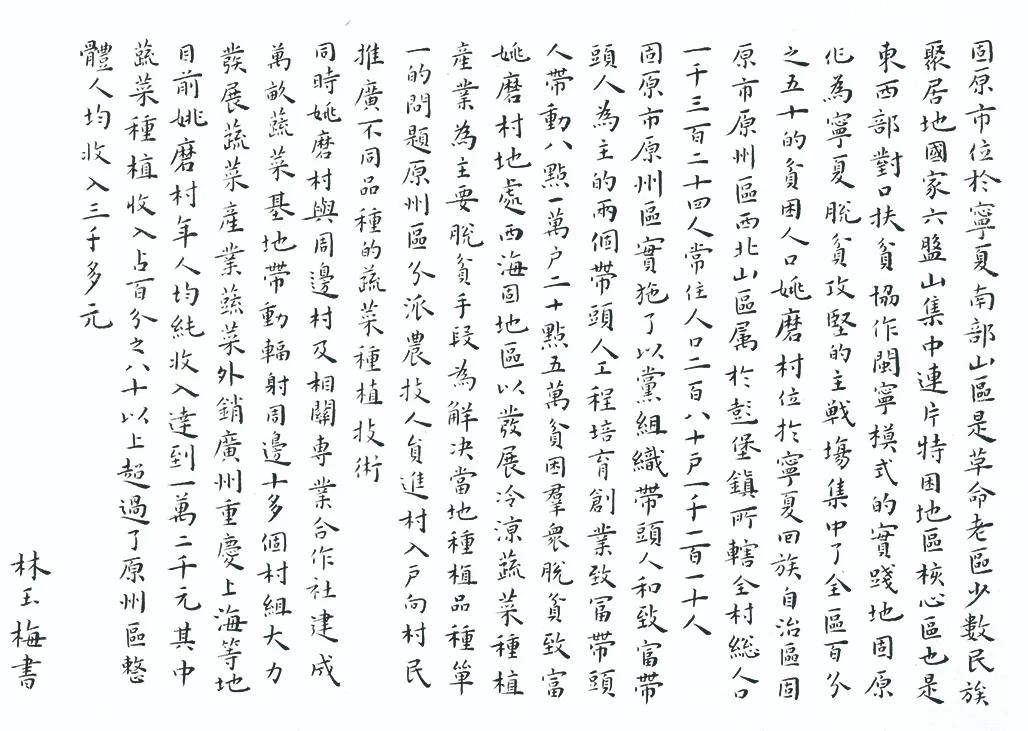 固原市位於寧夏南部山區是革命老區少數民族
聚居地國家六盤山集中連片特困地區核心區也是
東西部對口扶貧協作閩寧模式的實踐地固原
化為寧夏脫貧攻堅的主戰場集中了全區百分
之五十的貧困人口姚磨村位於寧夏回族自治區固
原市原州區西北山區属於彭堡鎮所轄全村総人口
一千三百二十四人常住人口二百八十戶一千二百一十人
固原市原州區實施了以黨組織帶頭人和致富帶
頭人為主的兩個帶頭人工程培育創業致富帶頭
人帶動八點一萬户二十點五萬貧困羣衆脫貧致富
姚磨村地處西海固地區以發展冷涼蔬菜種植
產業為主要脫貧手段為解決當地種植品種單
一的問題原州區分派農技人員進村入戶向村民
推廣不同品種的蔬菜種植技術
同時姚磨村與周邊村及相關專業合作社建成
萬畝蔬菜基地帶動輻射周邊十多個村組大力
發展蔬菜產業蔬菜外銷廣州重慶上海等地
目前姚磨村年人均純收入達到一萬二千元其中
蔬菜種植收入占百分之八十以上超過了原州區整
體人均收入三千多元
林玉梅書